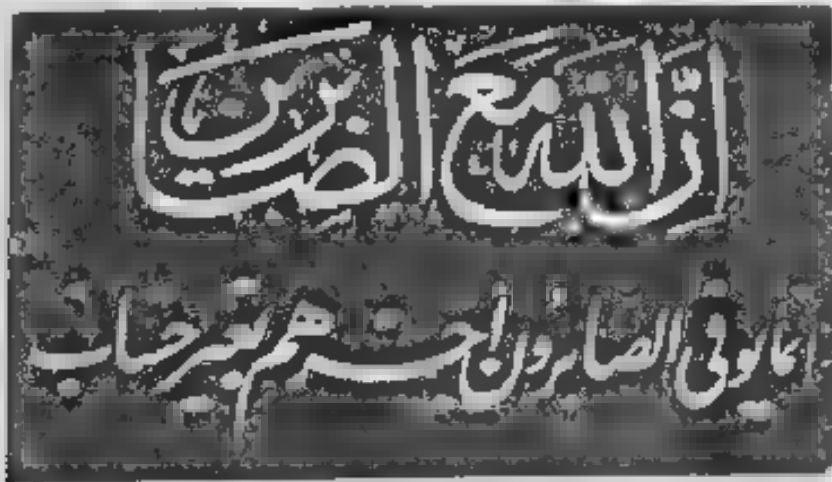 إن الله مع الصابرين
إنما يوفى الصابرون أجرهم بغير حساب